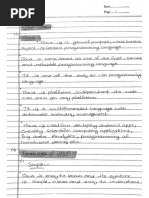 Date
Page
Java is a general purpose, class based,
object oriented programming language.
Java is considered as one of the fast, secure
and reliable programming language.
It is one of the easy to use programming
language.
Java is platform independent the code
can run on any platform.
It is an language with
automatic memory management.
Java is used for desktop android apps,
Scientific computing applications,
Big Data Analytics, programming
of
Features of
Simple:
Java is easy to learn and its syntax
is simple, clean and easy to understand.